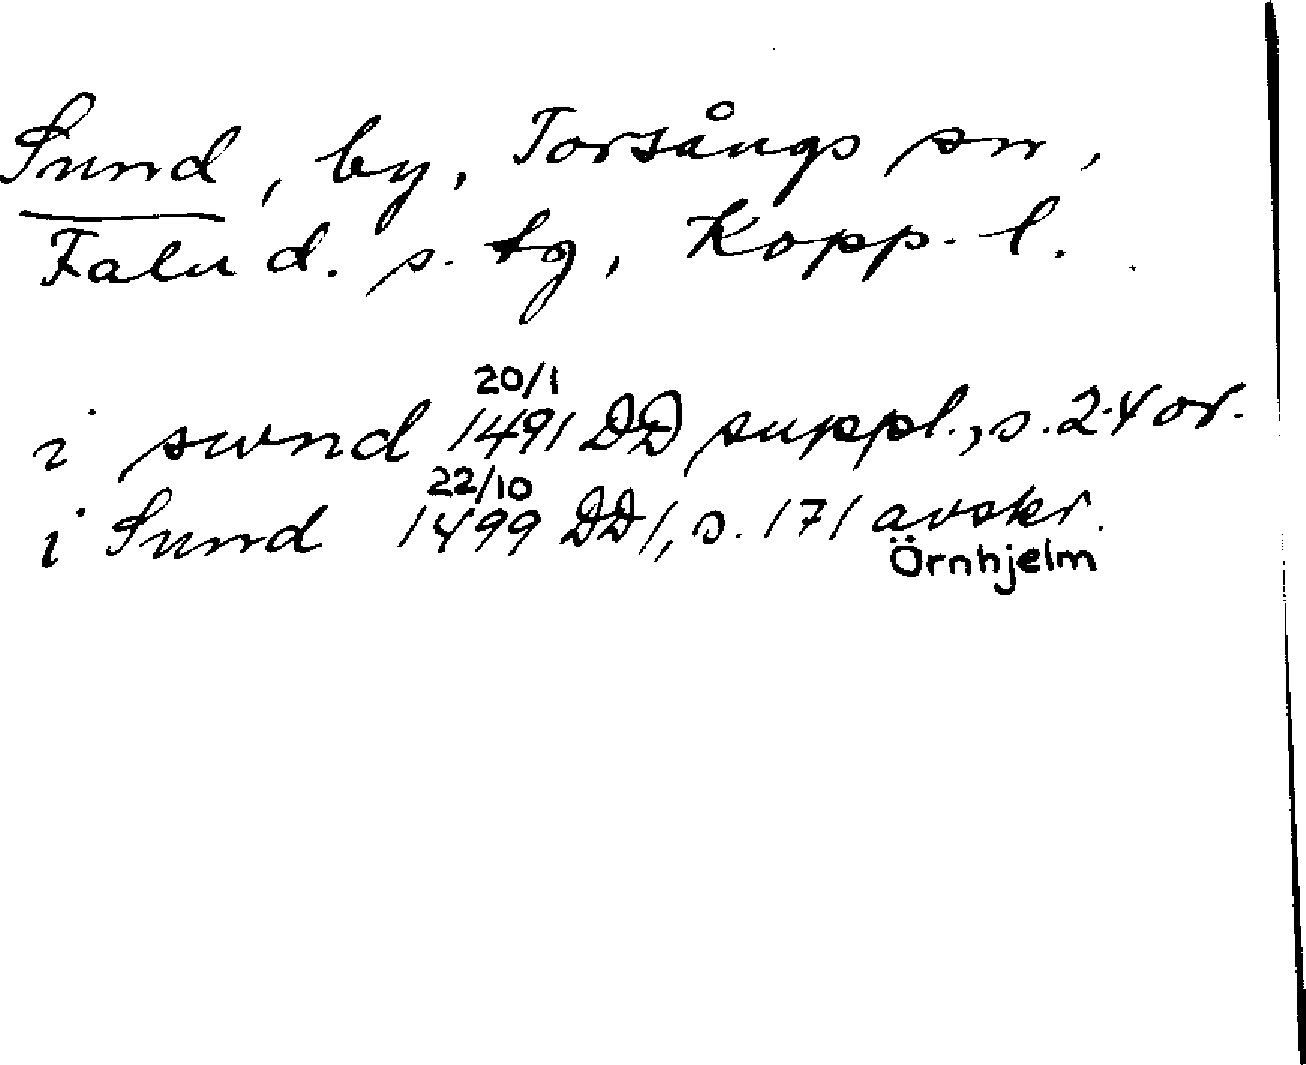 Sund, by, Torsångs sn,
Falu d. s. tg, Kopp. l.
20/1
i swnd 1491 DD suppl., s. 24 or.
22/10
i Sund 1499 DD 1, s. 171 avskr.
Örnhjelm